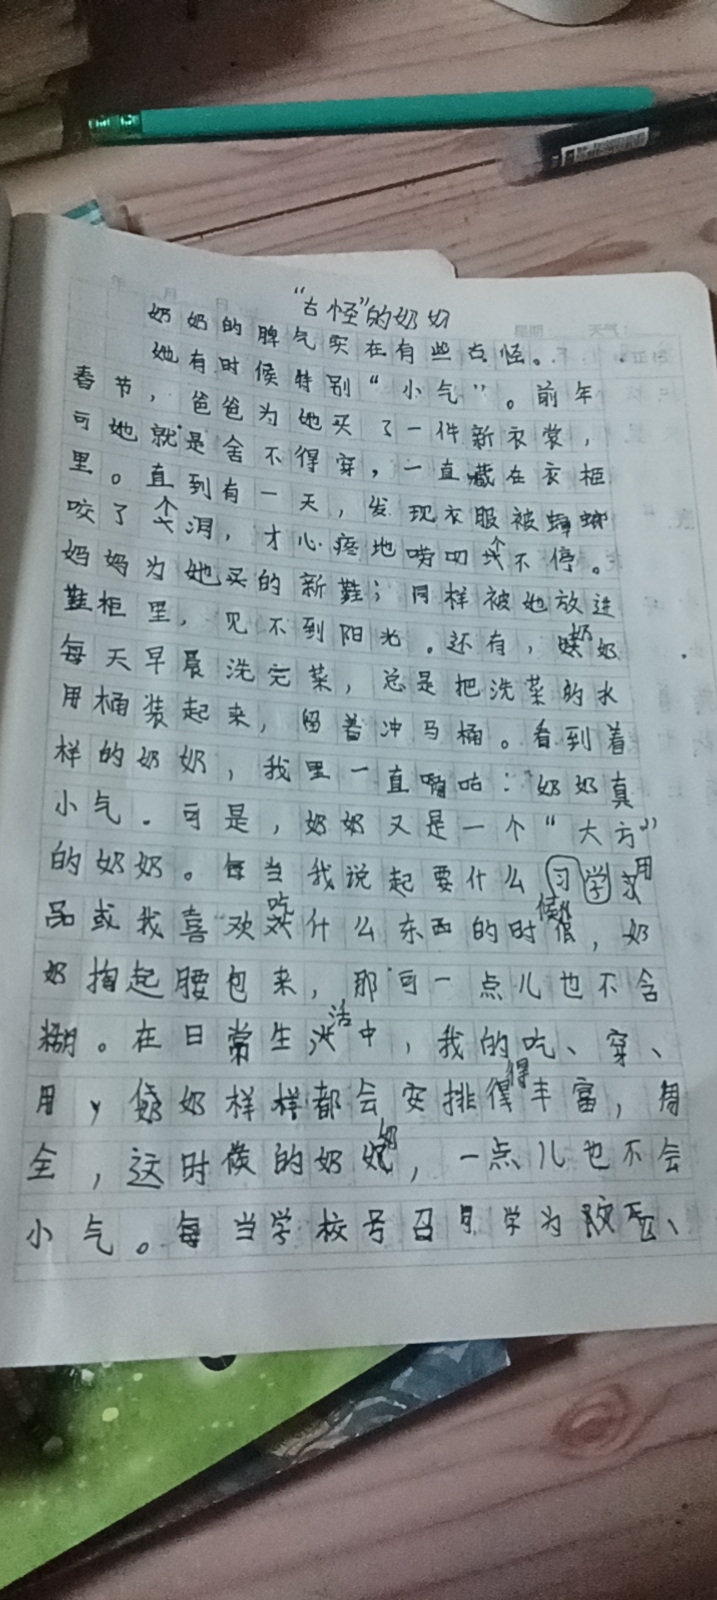 年 月 日
星期 天气:
“古怪”的奶奶
奶奶的脾气实在有些古怪。
她有时候特别“小气”。前年
春节，爸爸为她买了一件新衣裳，
可她就是舍不得穿，一直藏在衣柜
里。直到有一天，发现衣服被蟑螂
咬了个洞，才心疼地唠叨个不停。
妈妈为她买的新鞋；同样被她放进
鞋柜里，见不到阳光。还有，奶奶
每天早晨洗完菜，总是把洗菜的水
用桶装起来，留着冲马桶。看到着
样的奶奶，我里一直嘀咕：奶奶真
小气。可是，奶奶又是一个“大方”
的奶奶。每当我说起要什么习学用
品或我喜欢吃什么东西的时候，奶
奶掏起腰包来，那可一点儿也不含
糊。在日常生活中，我的吃、穿、
用，奶奶样样都会安排得丰富，周
全，这时候的奶奶，一点儿也不会
小气。每当学校号召同学为